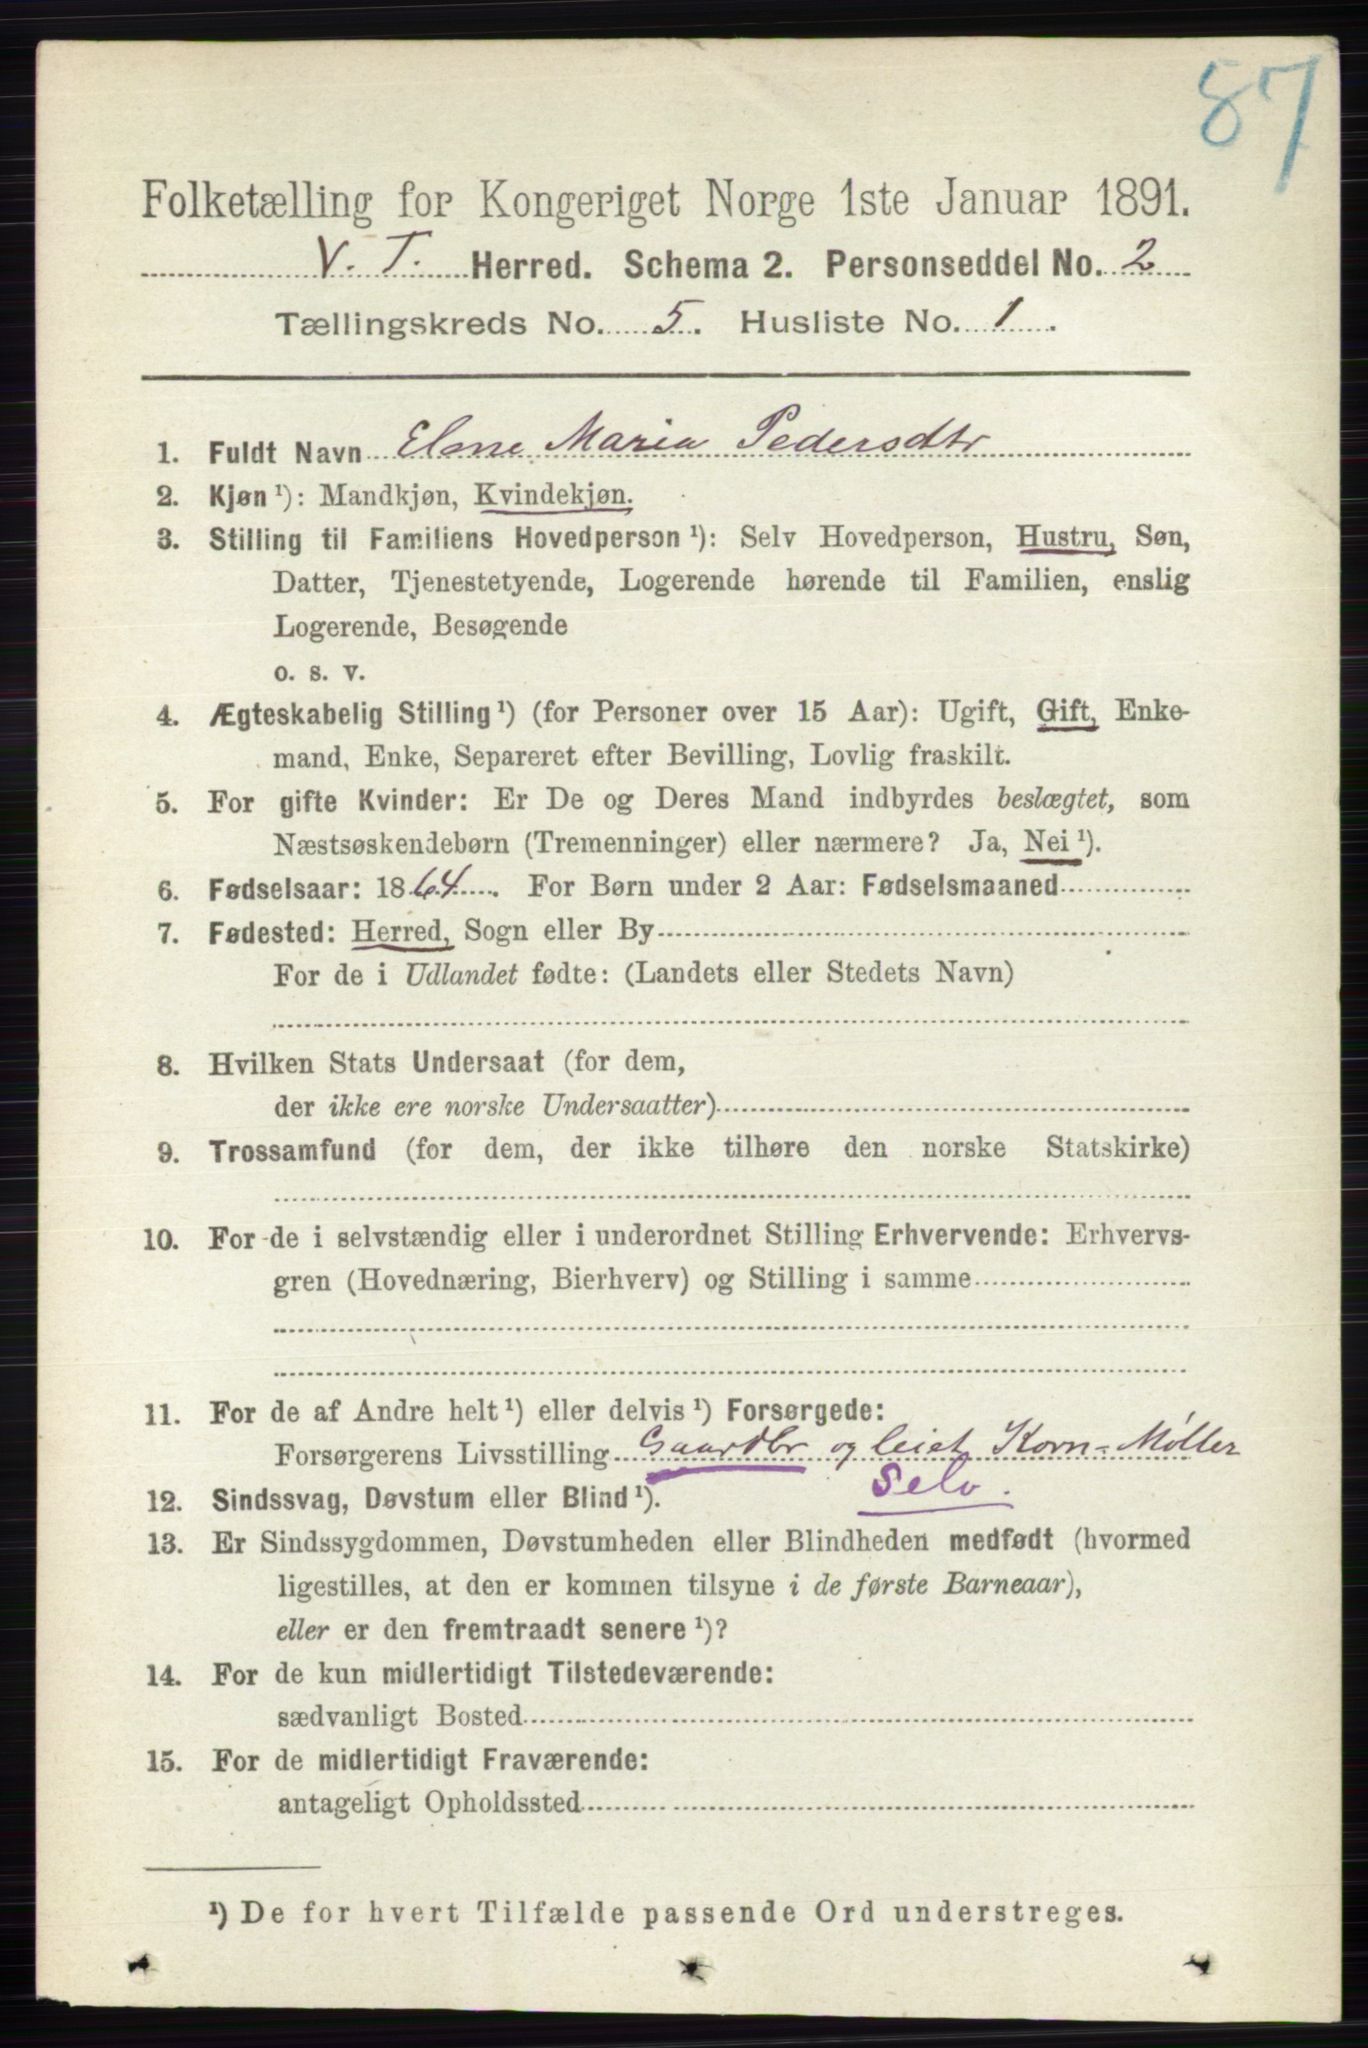 87
Folketælling for Kongeriget Norge 1ste Januar 1891.
V. T. Herred. Schema 2. Personseddel No. 2
Tællingskreds No. 5. Husliste No. 1.
1. Fuldt Navn Elene Maria Pedersdtr
2. Kjøn ¹): Mandkjøn, Kvindekjøn.
3. Stilling til Familiens Hovedperson ¹): Selv Hovedperson, Hustru, Søn,
Datter, Tjenestetyende, Logerende hørende til Familien, enslig
Logerende, Besøgende
o. s. v.
4. Ægteskabelig Stilling ¹) (for Personer over 15 Aar): Ugift, Gift, Enke-
mand, Enke, Separeret efter Bevilling, Lovlig fraskilt.
5. For gifte Kvinder: Er De og Deres Mand indbyrdes beslægtet, som
Næstsøskendebørn (Tremenninger) eller nærmere? Ja, Nei ¹).
6. Fødselsaar: 1864. For Børn under 2 Aar: Fødselsmaaned
7. Fødested: Herred, Sogn eller By
For de i Udlandet fødte: (Landets eller Stedets Navn)
8. Hvilken Stats Undersaat (for dem,
der ikke ere norske Undersaatter)
9. Trossamfund (for dem, der ikke tilhøre den norske Statskirke)
10. For de i selvstændig eller i underordnet Stilling Erhvervende: Erhvervs-
gren (Hovednæring, Bierhverv) og Stilling i samme
11. For de af Andre helt ¹) eller delvis ¹) Forsørgede:
Forsørgerens Livsstilling Gaardbr og leiet Korn-Møller
Selv.
12. Sindssvag, Døvstum eller Blind ¹).
13. Er Sindssygdommen, Døvstumheden eller Blindheden medfødt (hvormed
ligestilles, at den er kommen tilsyne i de første Barneaar),
eller er den fremtraadt senere ¹)?
14. For de kun midlertidigt Tilstedeværende:
sædvanligt Bosted
15. For de midlertidigt Fraværende:
antageligt Opholdssted
¹) De for hvert Tilfælde passende Ord understreges.